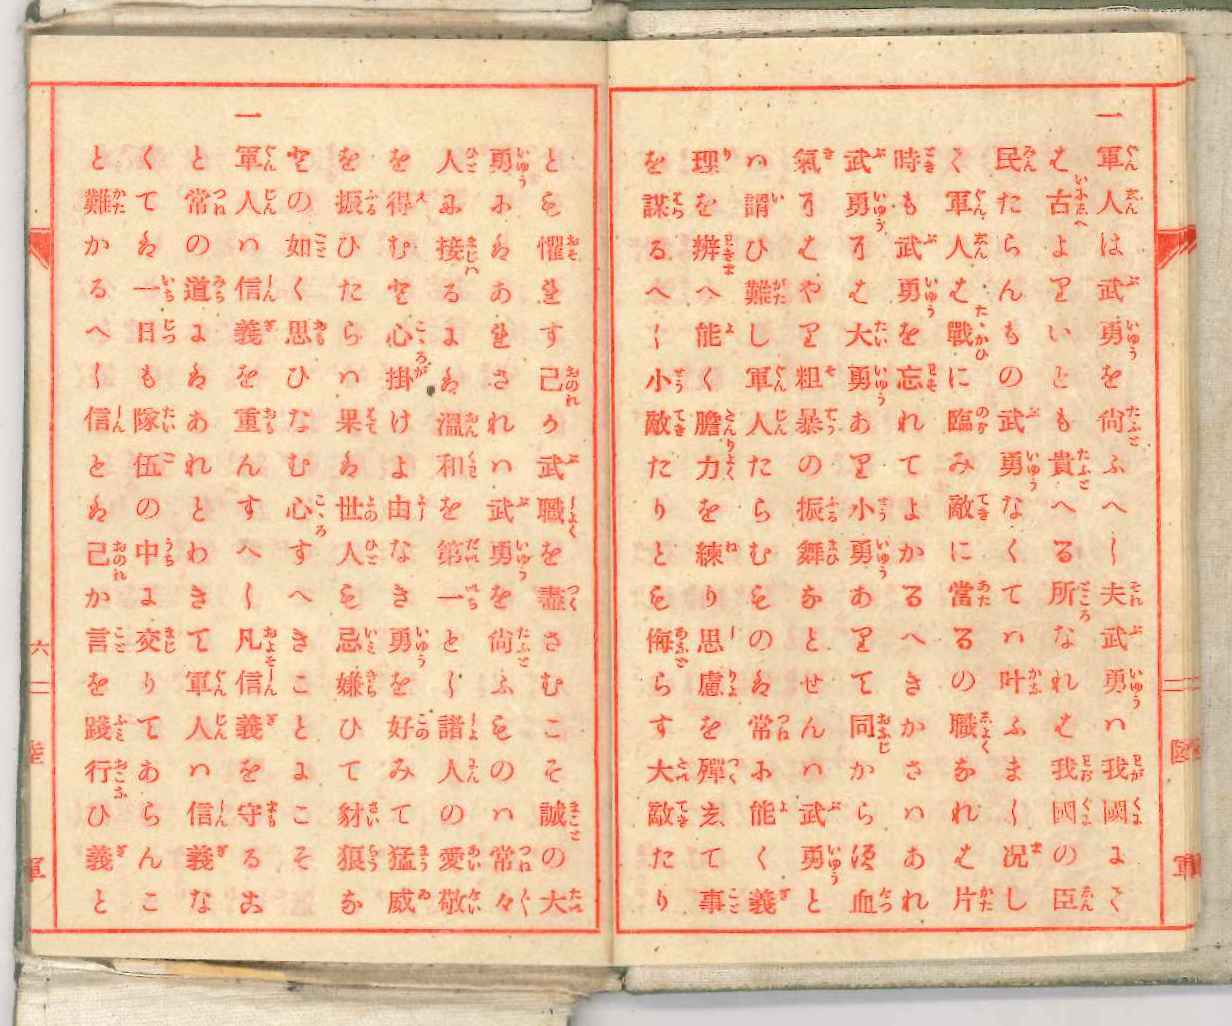 一 軍人は武勇を尚ふへし夫武勇ハ我國にて
は古よりいとも貴へる所なれは我國の臣
民たらんもの武勇なくてハ叶ふまし况し
て軍人は戰に臨み敵に當るの職なれは片
時も武勇を忘れてよかるへきかさハあれ
武勇には大勇あり小勇ありて同からす血
氣にはやり粗暴の振舞なとせんハ武勇と
ハ謂ひ難し軍人たらむものは常に能く義
理を辨へ能く膽力を練り思慮を殫して事
を謀るへし小敵たりとも侮らす大敵たり
とも懼れす己か武職を盡さむこそ誠の大
勇にはあれされハ武勇を尚ふものハ常々
人に接るには溫和を第一とし諸人の愛敬
を得むと心掛けよ由なき勇を好みて猛威
を振ひたらハ果は世人も忌嫌ひて豺狼な
との如く思ひなむ心すへきことにこそ
一 軍人ハ信義を重んすへし凡信義を守るこ
と常の道にはあれとわきて軍人ハ信義な
くては一日も隊伍の中に交りてあらんこ
と難かるへし信とは己か言を踐行ひ義と